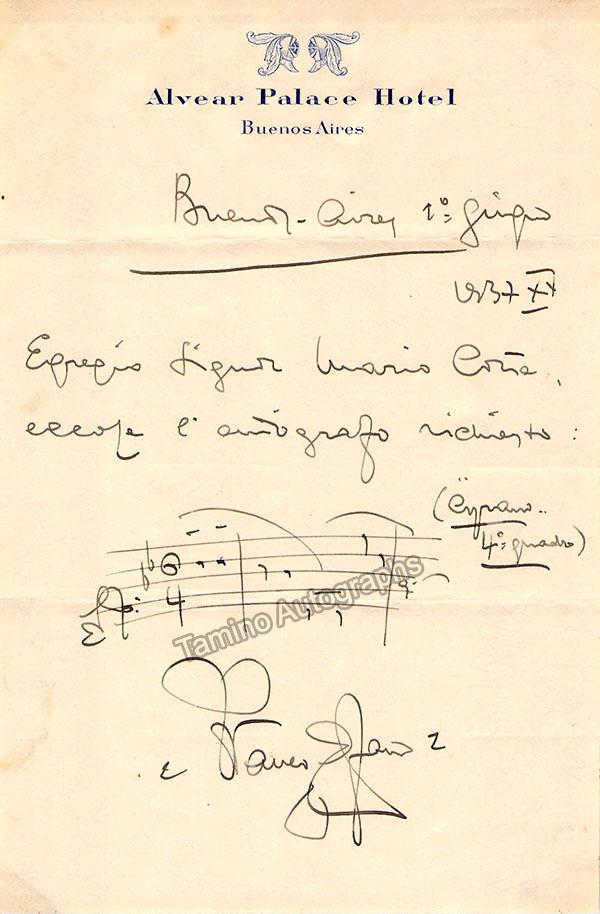 Alvear Palace Hotel
Buenos Aires
Buenos-Aires 1º: Giugno
1937 XV
Egregio Signor Mario
eccole l'autografo richiesto:
(Cyrano..
4º: quadro)
6
4
Tamino Autographs
Franco Alfano